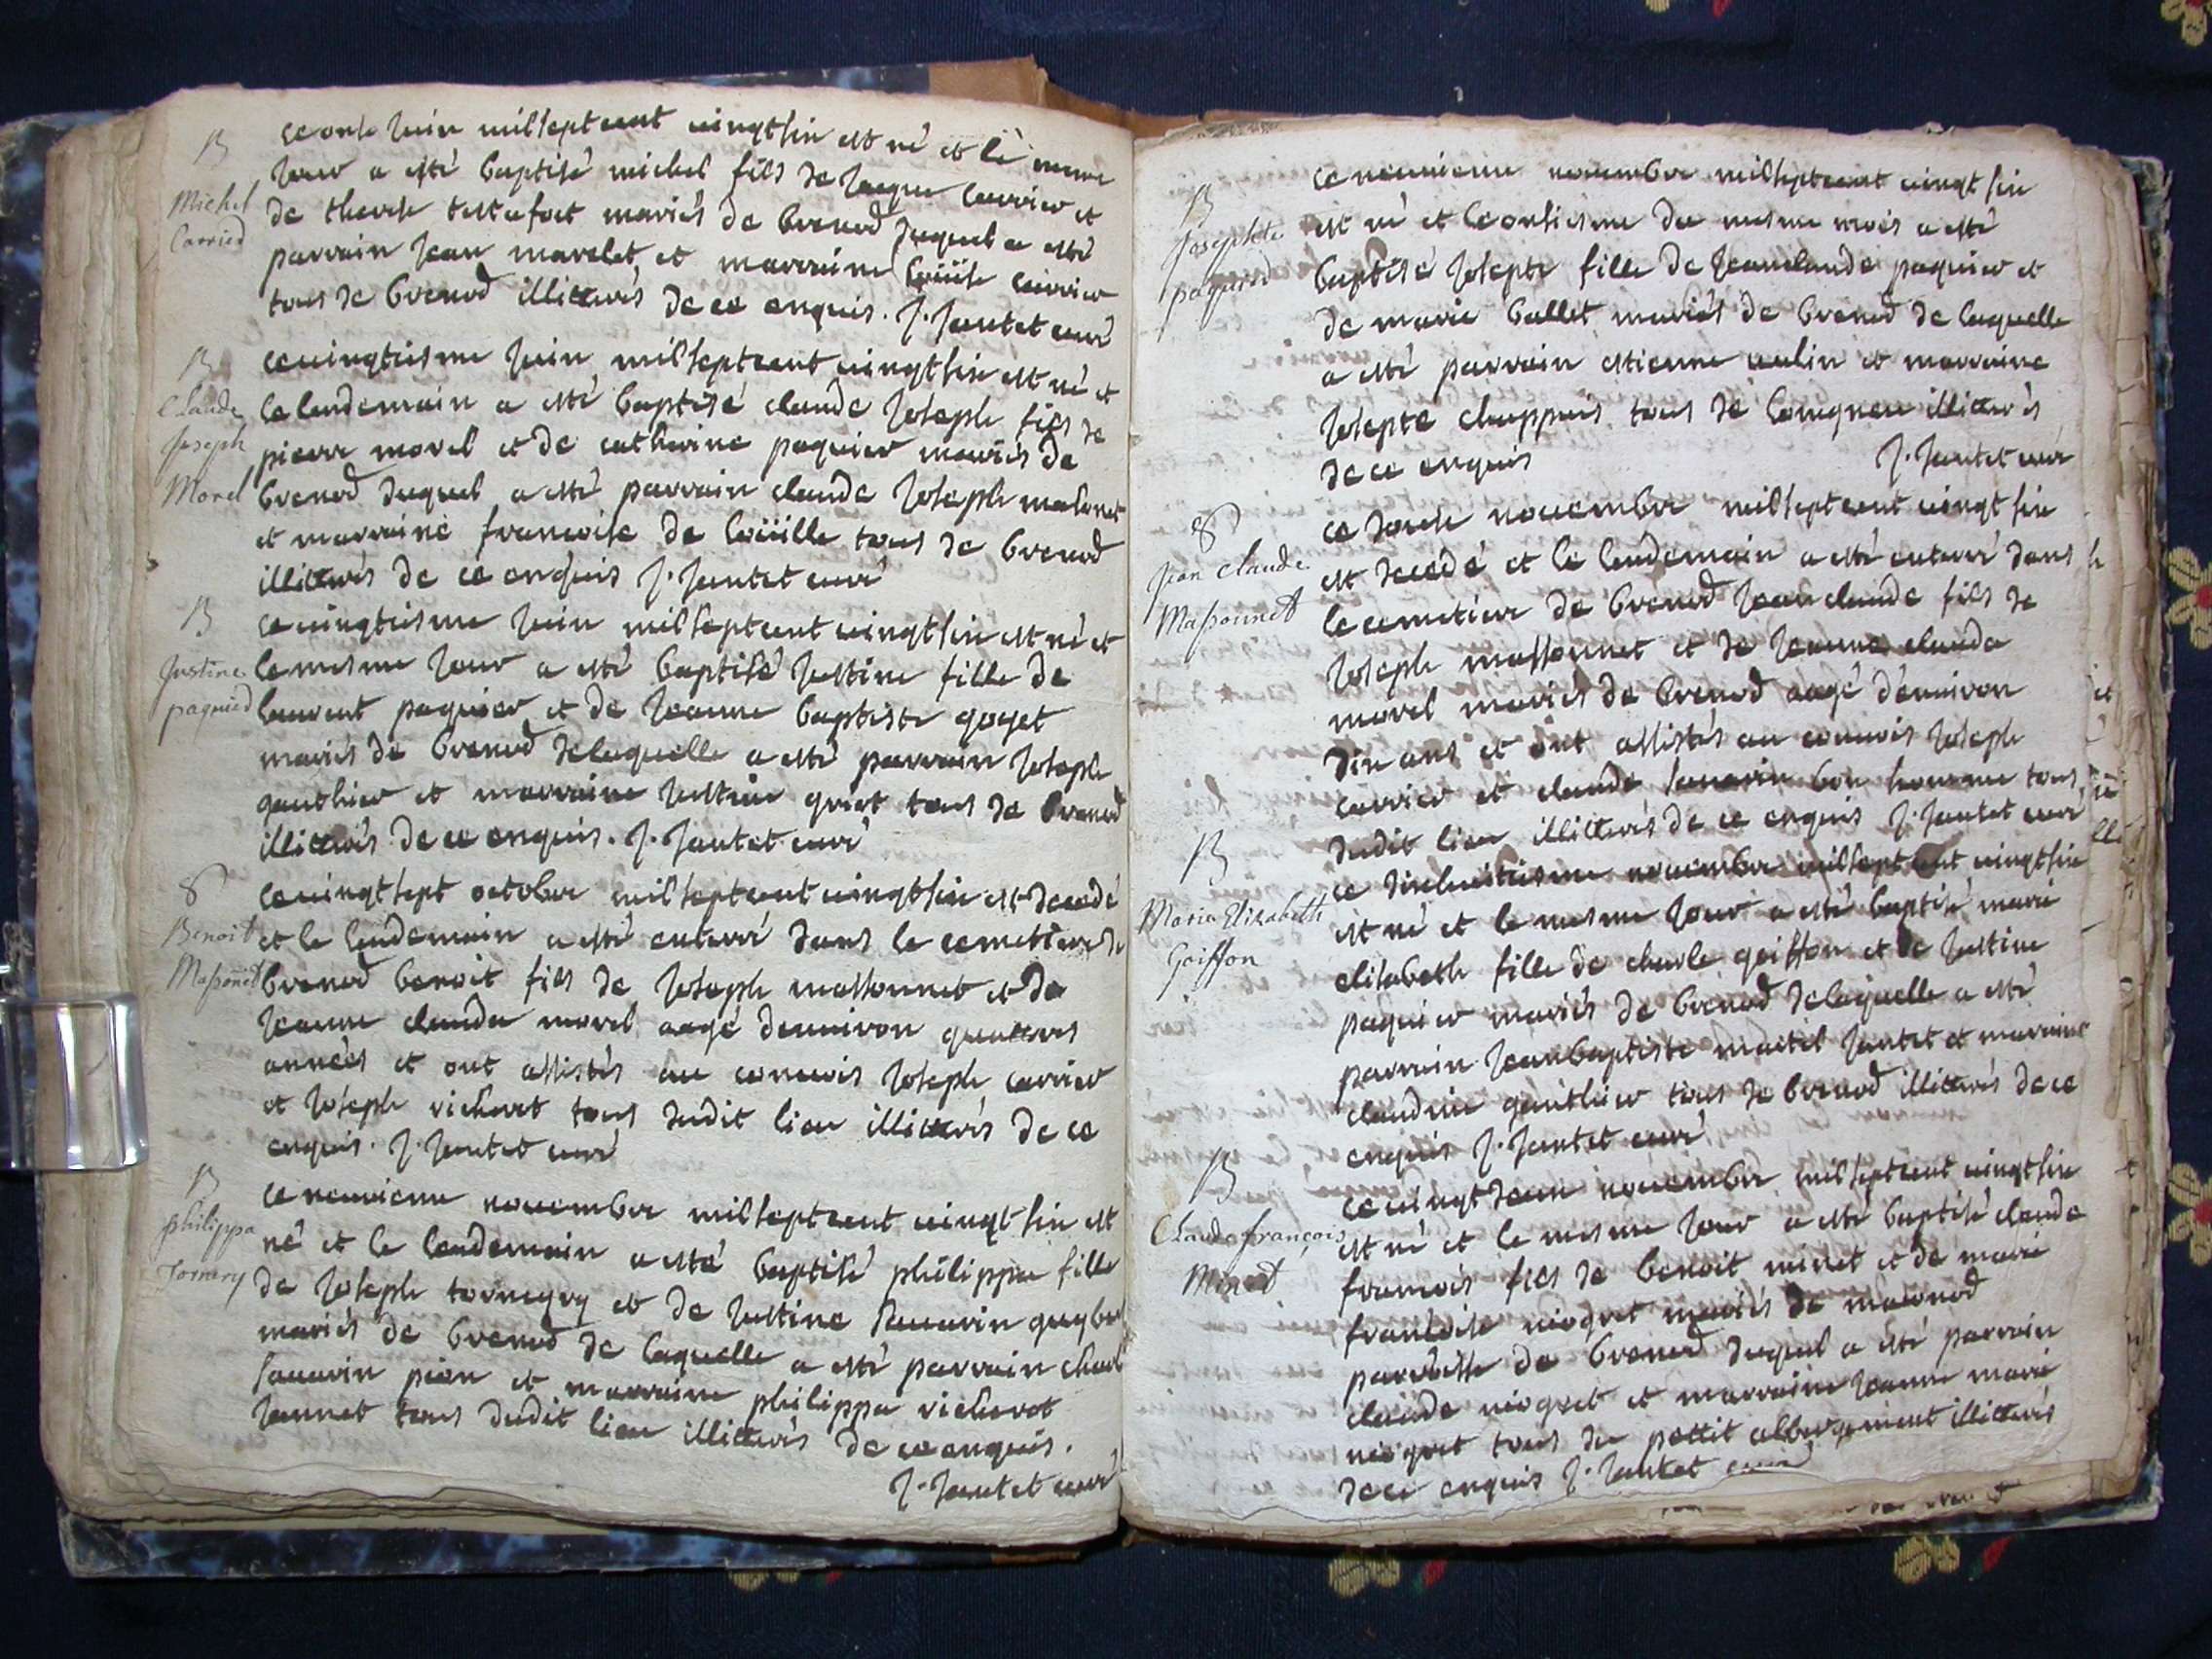 B
Michel
Carried
ce onse Juin milseptcent vingtsix est né et le mesme
Jour a esté baptisé michel fils de Jaque carrier et
de therese testefort mariés de brenod duquel a esté
parrain Jean morelet et marraine loüise carrier
tous de brenod illiterés de ce enquis. J. Jantet curé
B
Claude
Joseph
Morel
ce vingtiesme Juin milseptcent vingtsix est né et
le lendemain a esté baptisé claude Joseph fils de
pierre morel et de catherine paquier mariés de
brenod duquel a esté parrain claude Joseph masonet
et marraine francoise de loüille tous de brenod
illiterés de ce enquis J. Jantet curé
B
Justine
paquied
ce vingtiesme Juin milseptcent vingtsix est né et
le mesme Jour a esté baptisé Justine fille de
laurent paquier et de Jeanne baptiste goyet
mariés de brenod de laquelle a esté parrain Joseph
gauthier et marraine Justine griot tous de brenod
illiterés de ce enquis. J. Jantet curé
8
Benoit
Massonet
ce vingtsept octobre milseptcent vingtsix est decedé
et le lendemain a esté enterré dans le cemetiere de
brenod benoit fils de Joseph massonnet et de
Jeanne clauda morel aagé denuiron quatres
années et ont assistés au conuois Joseph carrier
et Joseph richerot tous dudit lieu illiterés de ce
enquis. J. Jantet curé
B
philippa
Tornery
ce neuuieme nouembre milseptcent vingt six est
né et le lendemain a esté baptisé philippa fille
de Joseph tornegry et de Justine sauarin
mariés de brenod de laquelle a esté parrain charl
sauarin pion et marraine philippa richerot
Jannet tous dudit lieu illiterés de ce enquis.
J. Jantet curé
B
Josephte
paquied
ce neuuieme nouembre milseptcent vingt six
est né et le onsiesme du mesme mois a esté
baptisé Josepte fille de Jeanclaude paquier et
de marie ballet mariés de brenod de laquelle
a esté parrain estienne aulin et marraine
Josepte chappuis tous de longneu illiterés
de ce enquis J. Jantet curé
8
Jean claude
Massonnet
ce douse nouembre milseptcent vingt six
est decedé et le lendemain a esté enterré dans
le cemetiere de brenod Jean claude fils de
Joseph massonnet et de Jeanne clauda
morel mariés de brenod aagé denuiron
dix ans et ont assistés au conuois Joseph
carrier et claude sauarin bon homme tous
dudit lieu illiterés de ce enquis J. Jantet curé
B
Marie Elizabeth
Goiffon
ce dixhuitiesme nouembre milseptcent vingtsix
est né et le mesme Jour a esté baptisé marie
elisabeth fille de charle goiffon et de Justine
paquier mariés de brenod de laquelle a esté
parrain Jeanbaptiste maitel Jantet et marraine
claudine gauthier tous de brenod illiterés de ce
enquis J. Jantet curé
B
Claude françois
Minet
ce vingt deux nouembre milseptcent vingtsix
est né et le mesme Jour a esté baptisé claude
francois fils de benoit minet et de marie
francoise niogret mariés de macconod
paroisse de brenod duquel a esté parrain
claude niogret et marraine Jeanne marie
niogret tous du pettit abbergement illiterés
de ce enquis J. Jantet curé